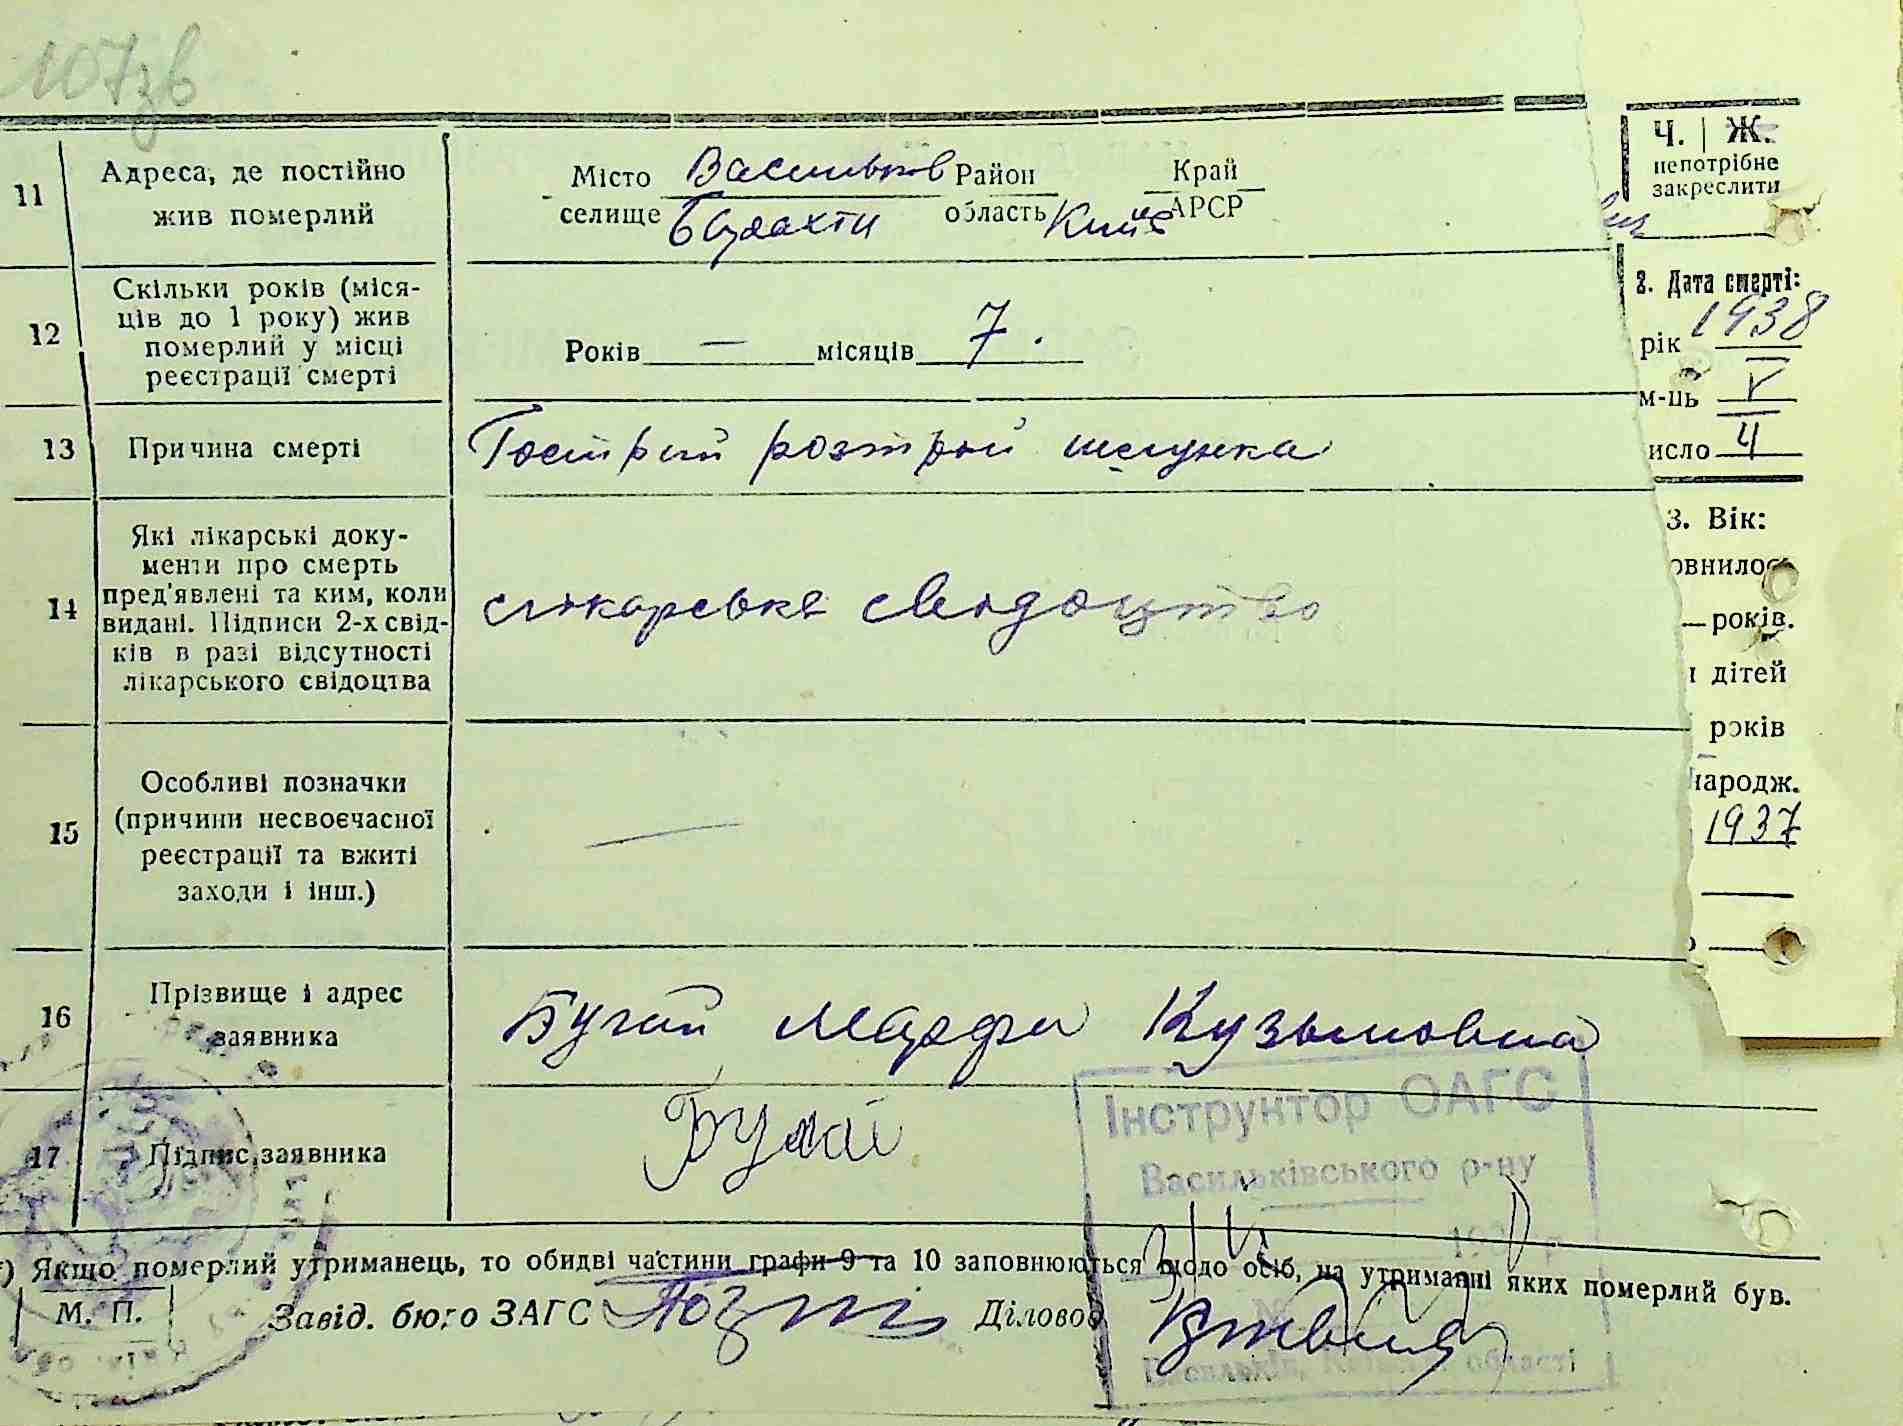 107зв
11
Адреса, де постійно
жив померлий
Місто Васильков Район Край
селище область Київ АРСР
12
Скільки років (міся-
ців до 1 року) жив
померлий у місці
реєстрації смерті
Років — місяців 7.
13
Причина смерті
Гострий розтрой шелунка
14
Які лікарські доку-
менти про смерть
пред'явлені та ким, коли
видані. Підписи 2-х свід-
ків в разі відсутності
лікарського свідоцтва
лікарське свідоцтво
15
Особливі позначки
(причини несвоєчасної
реєстрації та вжиті
заходи і інш.)
—
16
Прізвище і адрес
заявника
Бугай Марфа Кузьмовна
17
Підпис заявника
Бугай
*) Якщо померлий утриманець, то обидві частини графи 9 та 10 заповнюються щодо осіб, на утриманні яких померлий був.
М. П.
Завід. бюро ЗАГС
Діловод
Інструктор ОАГС
Васильківського р-ну
193 р.
№
Васильків, Київської області
Ч. | Ж.
непотрібне
закреслити
2. Дата смерті:
рік 1938
м-ць V
исло 4
3. Вік:
овнилось
— років.
дітей
років
народж.
1937